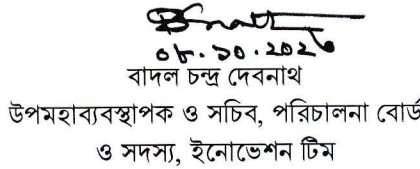 ০৮.১০.২০২৩
বাদল চন্দ্র দেবনাথ
উপমহাব্যবস্থাপক ও সচিব, পরিচালনা বোর্ড
ও সদস্য, ইনোভেশন টিম